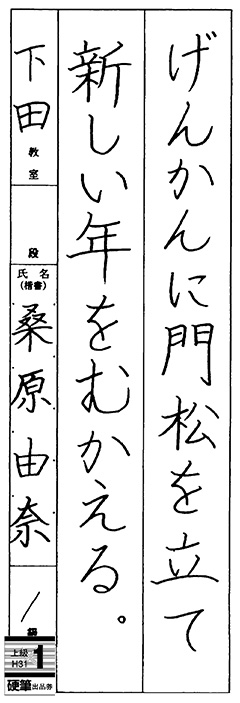 げんかんに門松を立て
新しい年をむかえる。
下田教室
段
氏名
(楷書)
桑原由奈
/級
上級
H31
1
硬筆出品券